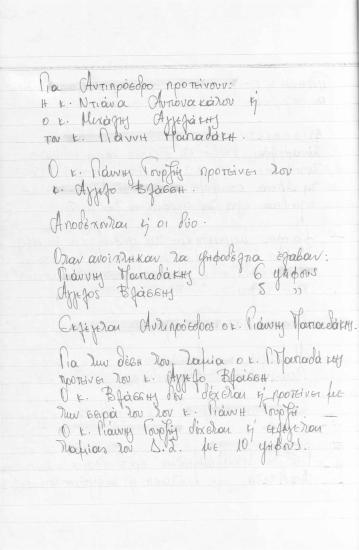 Για Αντιπρόεδρο προτείνουν:
η κ. Ντιάνα Αντωνακάτου ή
ο κ. Μιχάλης Αγγελάκης
τον κ. Γιάννη Παπαδάκη.
Ο κ. Γιάννης Γουρζής προτείνει τον
κ. Άγγελο Βλάσση.
Αποδέχονται ή οι δύο.
Όταν ανοίχτηκαν τα ψηφοδέλτια έλαβαν:
Γιάννης Παπαδάκης 6 ψήφους
Άγγελος Βλάσσης 5 "
Εκλέγεται Αντιπρόεδρος ο κ. Γιάννης Παπαδάκης.
Για την θέση του ταμία ο κ. Γ. Παπαδάκης
προτείνει τον κ. Άγγελο Βλάσση.
Ο κ. Βλάσσης δεν δέχεται ή προτείνει με
την σειρά του τον κ. Γιάννη Γουρζή.
Ο κ. Γιάννης Γουρζής δέχεται ή εκλέγεται
ταμίας του Δ.Σ. με 10 ψήφους.